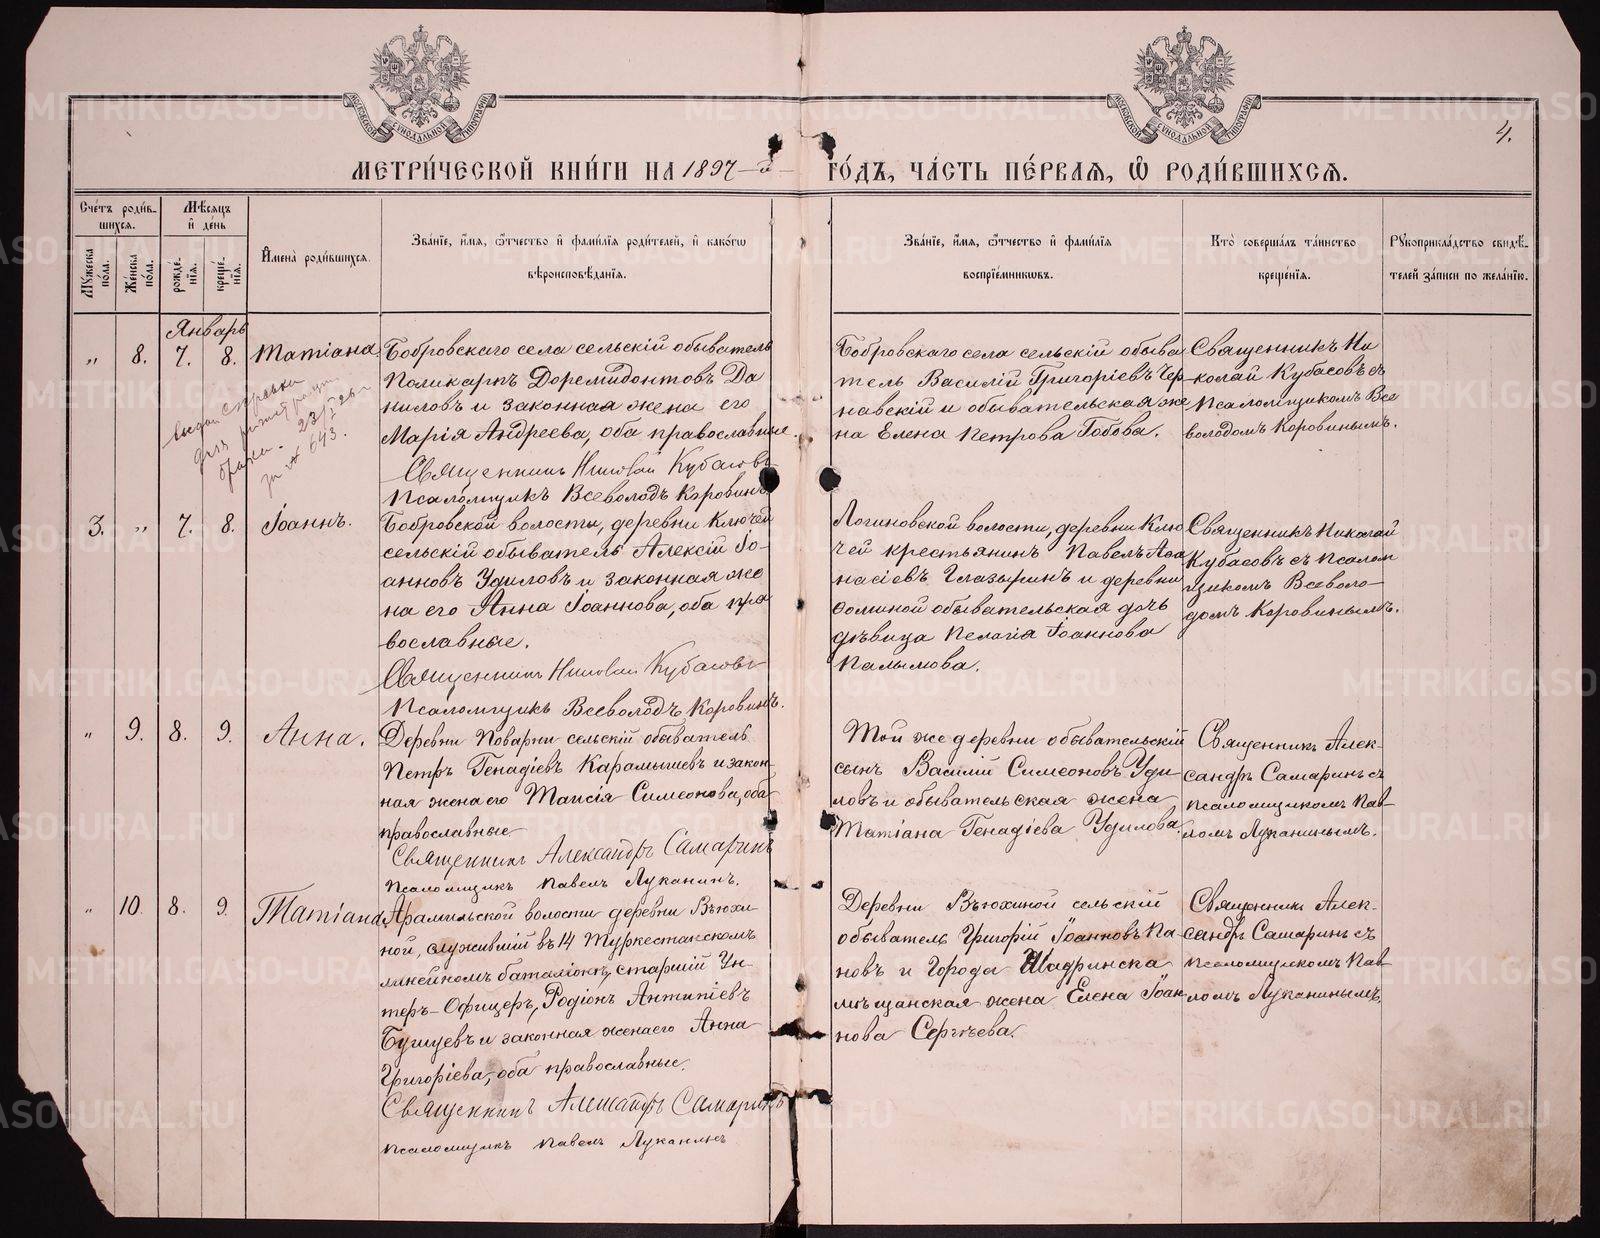 МЕТРИ́ЧЕСКОЙ КНИ́ГИ НА 1897-й
ГО́ДЪ, ЧА́СТЬ ПЕ́РВАЯ, Ѽ РОДИ́ВШИХСЯ.
4.
Сче́тъ роди́в-
шихся.
Мѣ́сяцъ
и́ де́нь
Му́жеска
по́ла.
Же́нска
по́ла.
рожде́-
нія.
креще́-
нія.
И҆мена̀ роди́вшихся.
Зва́ніе, и҆́мя, ѻ҆́тчество и҆ фами́лія роди́телей, и҆ како́гѡ
вѣроисповѣ́данія.
Зва́ніе, и҆́мя, ѻ҆́тчество и҆ фами́лія
воспріе́мниковъ.
Кто̀ соверша́лъ та́инство
креще́нія.
Рꙋкоприкла́дство свидѣ́-
телей за́писи по жела́нію.
Январь
„ 8. 7. 8. Татіана
Бобровскаго села сельскій обыватель
Поликарпъ Доремидонтовъ Да
ниловъ и законная жена его
Марія Андреева, оба православные.
Священникъ Николай Кубасовъ
Псаломщикъ Всеволодъ Коровинъ
Бобровскаго села сельскій обыва
тель Василій Григоріевъ Чер-
навскій и обывательская же
на Елена Петрова Гобова.
Священникъ Ни
колай Кубасовъ съ
псаломщикомъ Все
володомъ Коровинымъ.
выдан справка
для регистрации
брака. 23/I 26
за № 643.
3. „ 7. 8. Іоаннъ.
Бобровской волости, деревни Ключей
сельскій обыватель Алексій Іо-
анновъ Удиловъ и законная же
на его Анна Іоаннова, оба пра
вославные.
Священникъ Николай Кубасовъ
Псаломщикъ Всеволодъ Коровинъ.
Логиновской волости, деревни Клю
чей крестьянинъ Павелъ Аѳа
насіевъ Глазыринъ и деревни
обывательская дочь
дѣвица Пелагія Іоаннова
Палымова.
Священникъ Николай
Кубасовъ съ псалом
щикомъ Всеволо-
домъ Коровинымъ.
„ 9. 8. 9. Анна.
Деревни Поварни сельскій обыватель
Петръ Генадіевъ Карамышевъ и закон-
ная жена его Таисія Симеонова, оба
православные
Священникъ Александръ Самаринъ
Псаломщикъ Павелъ Луканинъ.
Той же деревни обывательскій
сынъ Василій Симеоновъ Уди
ловъ и обывательская жена
Татіана Генадіева Удилова.
Священникъ Алек-
сандръ Самаринъ съ
псаломщикомъ Пав-
ломъ Луканинымъ.
„ 10. 8. 9. Татіана.
Арамильской волости деревни Вьюхи-
ной, служившій въ 14 Туркестанскомъ
линейномъ баталіонѣ, старшій Ун-
теръ-Офицеръ, Родіонъ Антипіевъ
и законная жена его Анна
Григоріева, оба православные.
Священникъ Александръ Самаринъ
Псаломщикъ Павелъ Луканинъ
Деревни Вьюхиной сельскій
обыватель Григорій Іоанновъ Па-
новъ и Города Шадринска
мѣщанская жена Елена Іоан-
нова Сергѣева.
Священникъ Алек-
сандръ Самаринъ съ
псаломщикомъ Пав
ломъ Луканинымъ.
METRIKI.GASO-URAL.RU